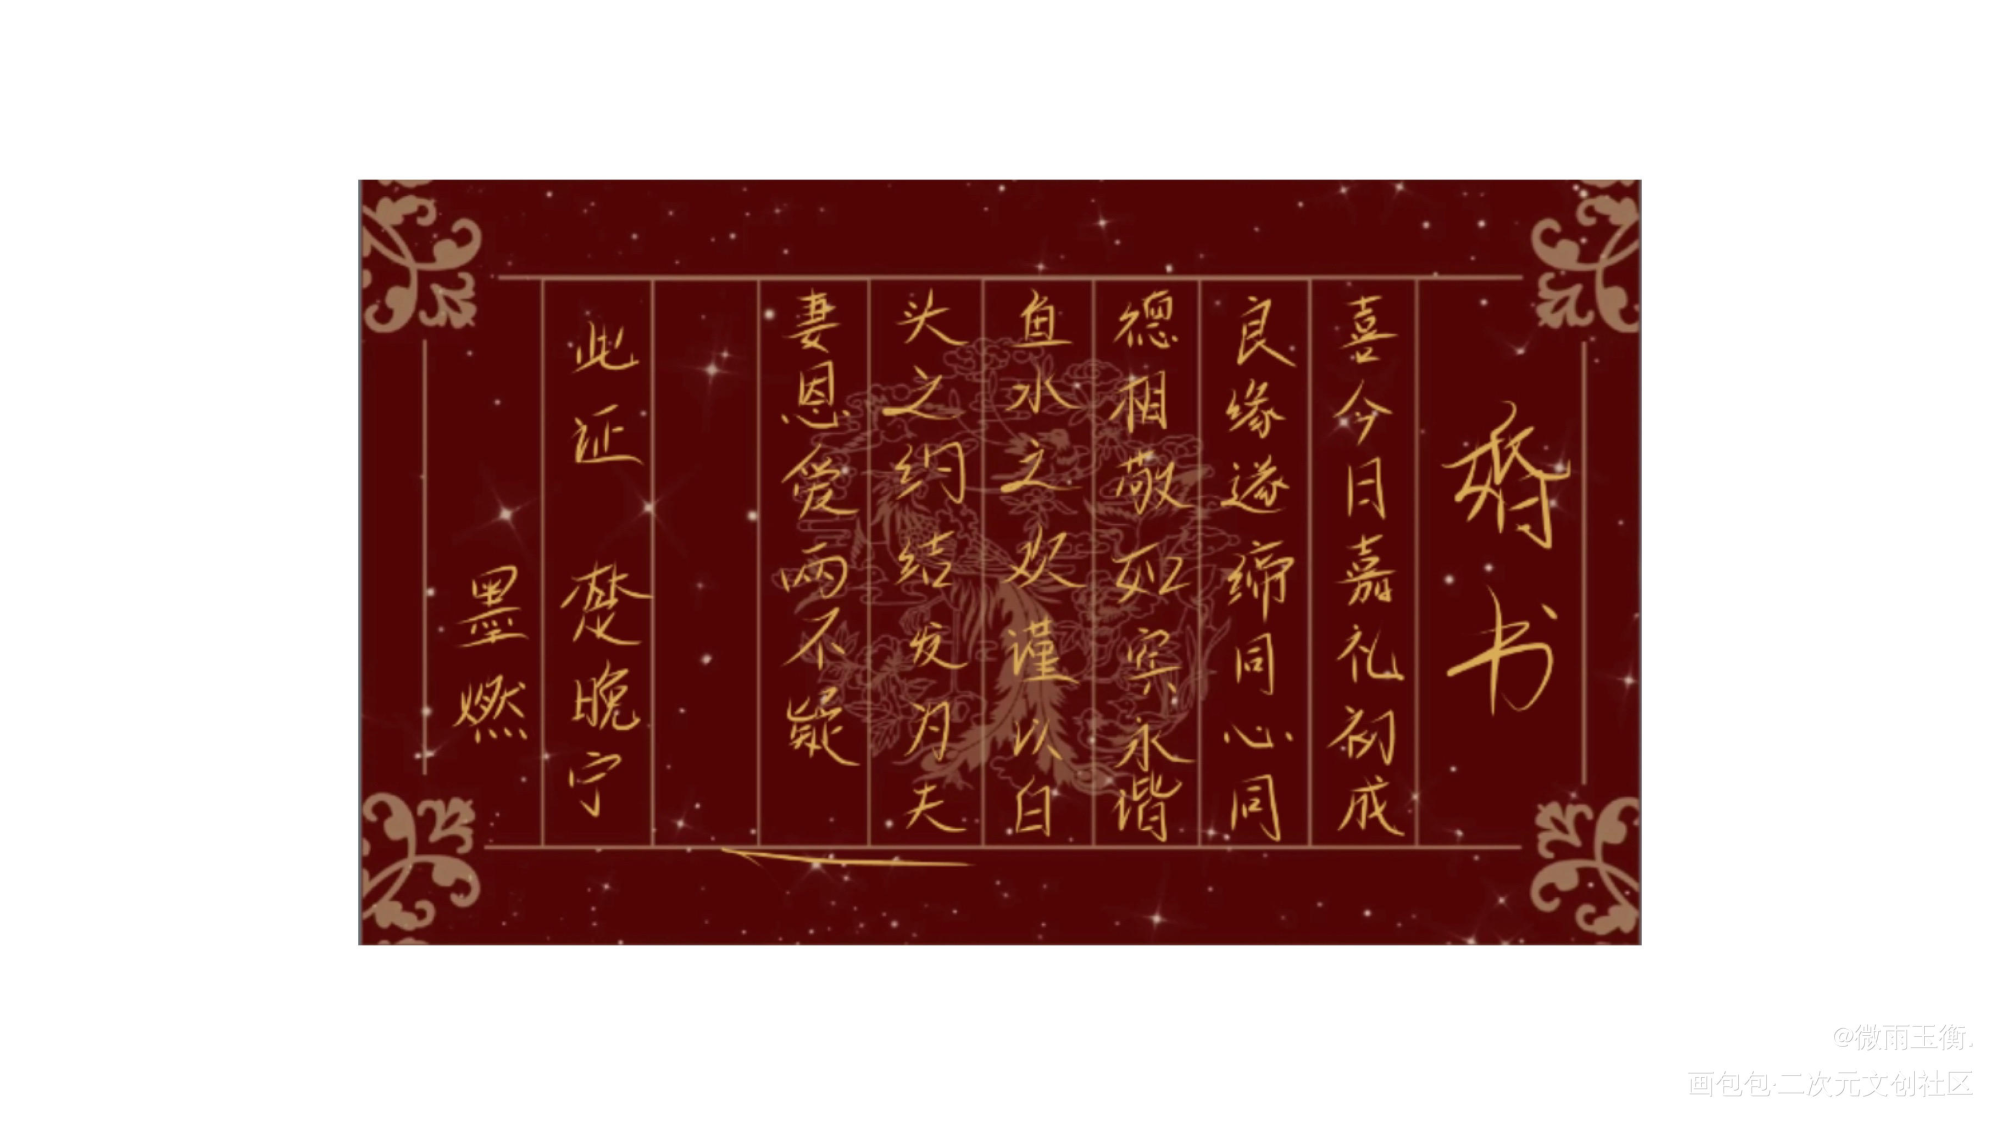 婚书
喜今日嘉礼初成
良缘遂缔同心同
德相敬如宾永谐
鱼水之欢谨以白
头之约结发为夫
妻恩爱两不疑
此证 楚晚宁
墨燃
@微雨玉衡.
画包包·二次元文创社区